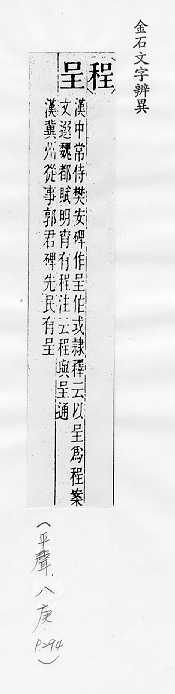 金石文字辨異
程
呈
漢中常侍樊安碑作呈作式隸釋云以呈爲程案
文選魏都賦明宵有程注云程與呈通
漢冀州從事郭君碑先民有呈
（平聲．八庚 P294）